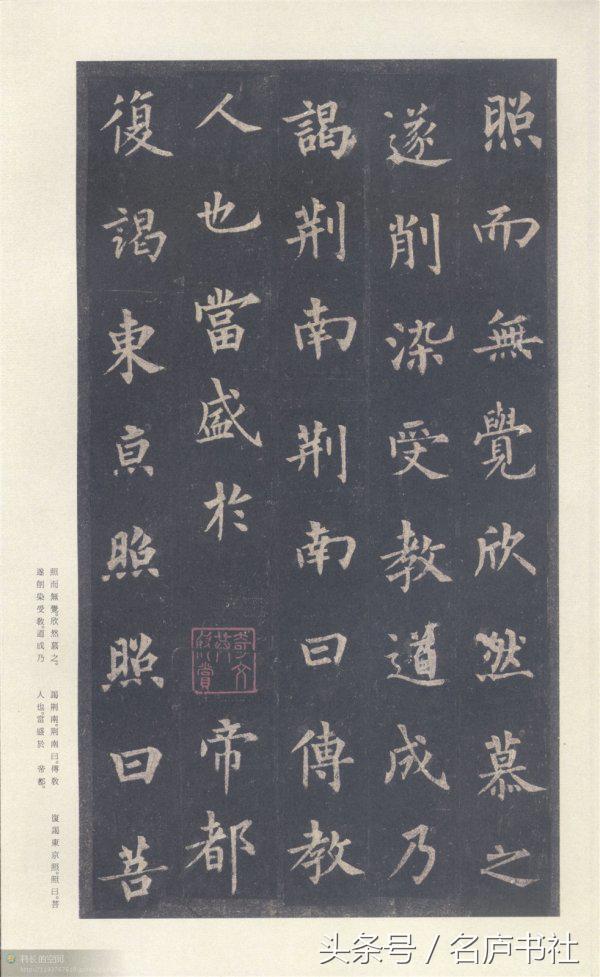 照而無覺欣然慕之
遂削染受教道成乃
謁荆南荆南曰傳教
人也當盛於
帝都
復謁東京照照曰菩
照而無覺。欣然慕之。
遂削染受教。道成乃
謁荆南。荆南曰。傳教
人也。當盛於 帝都。
復謁東京照。照曰。菩
头条号 / 名庐书社
科长的空间